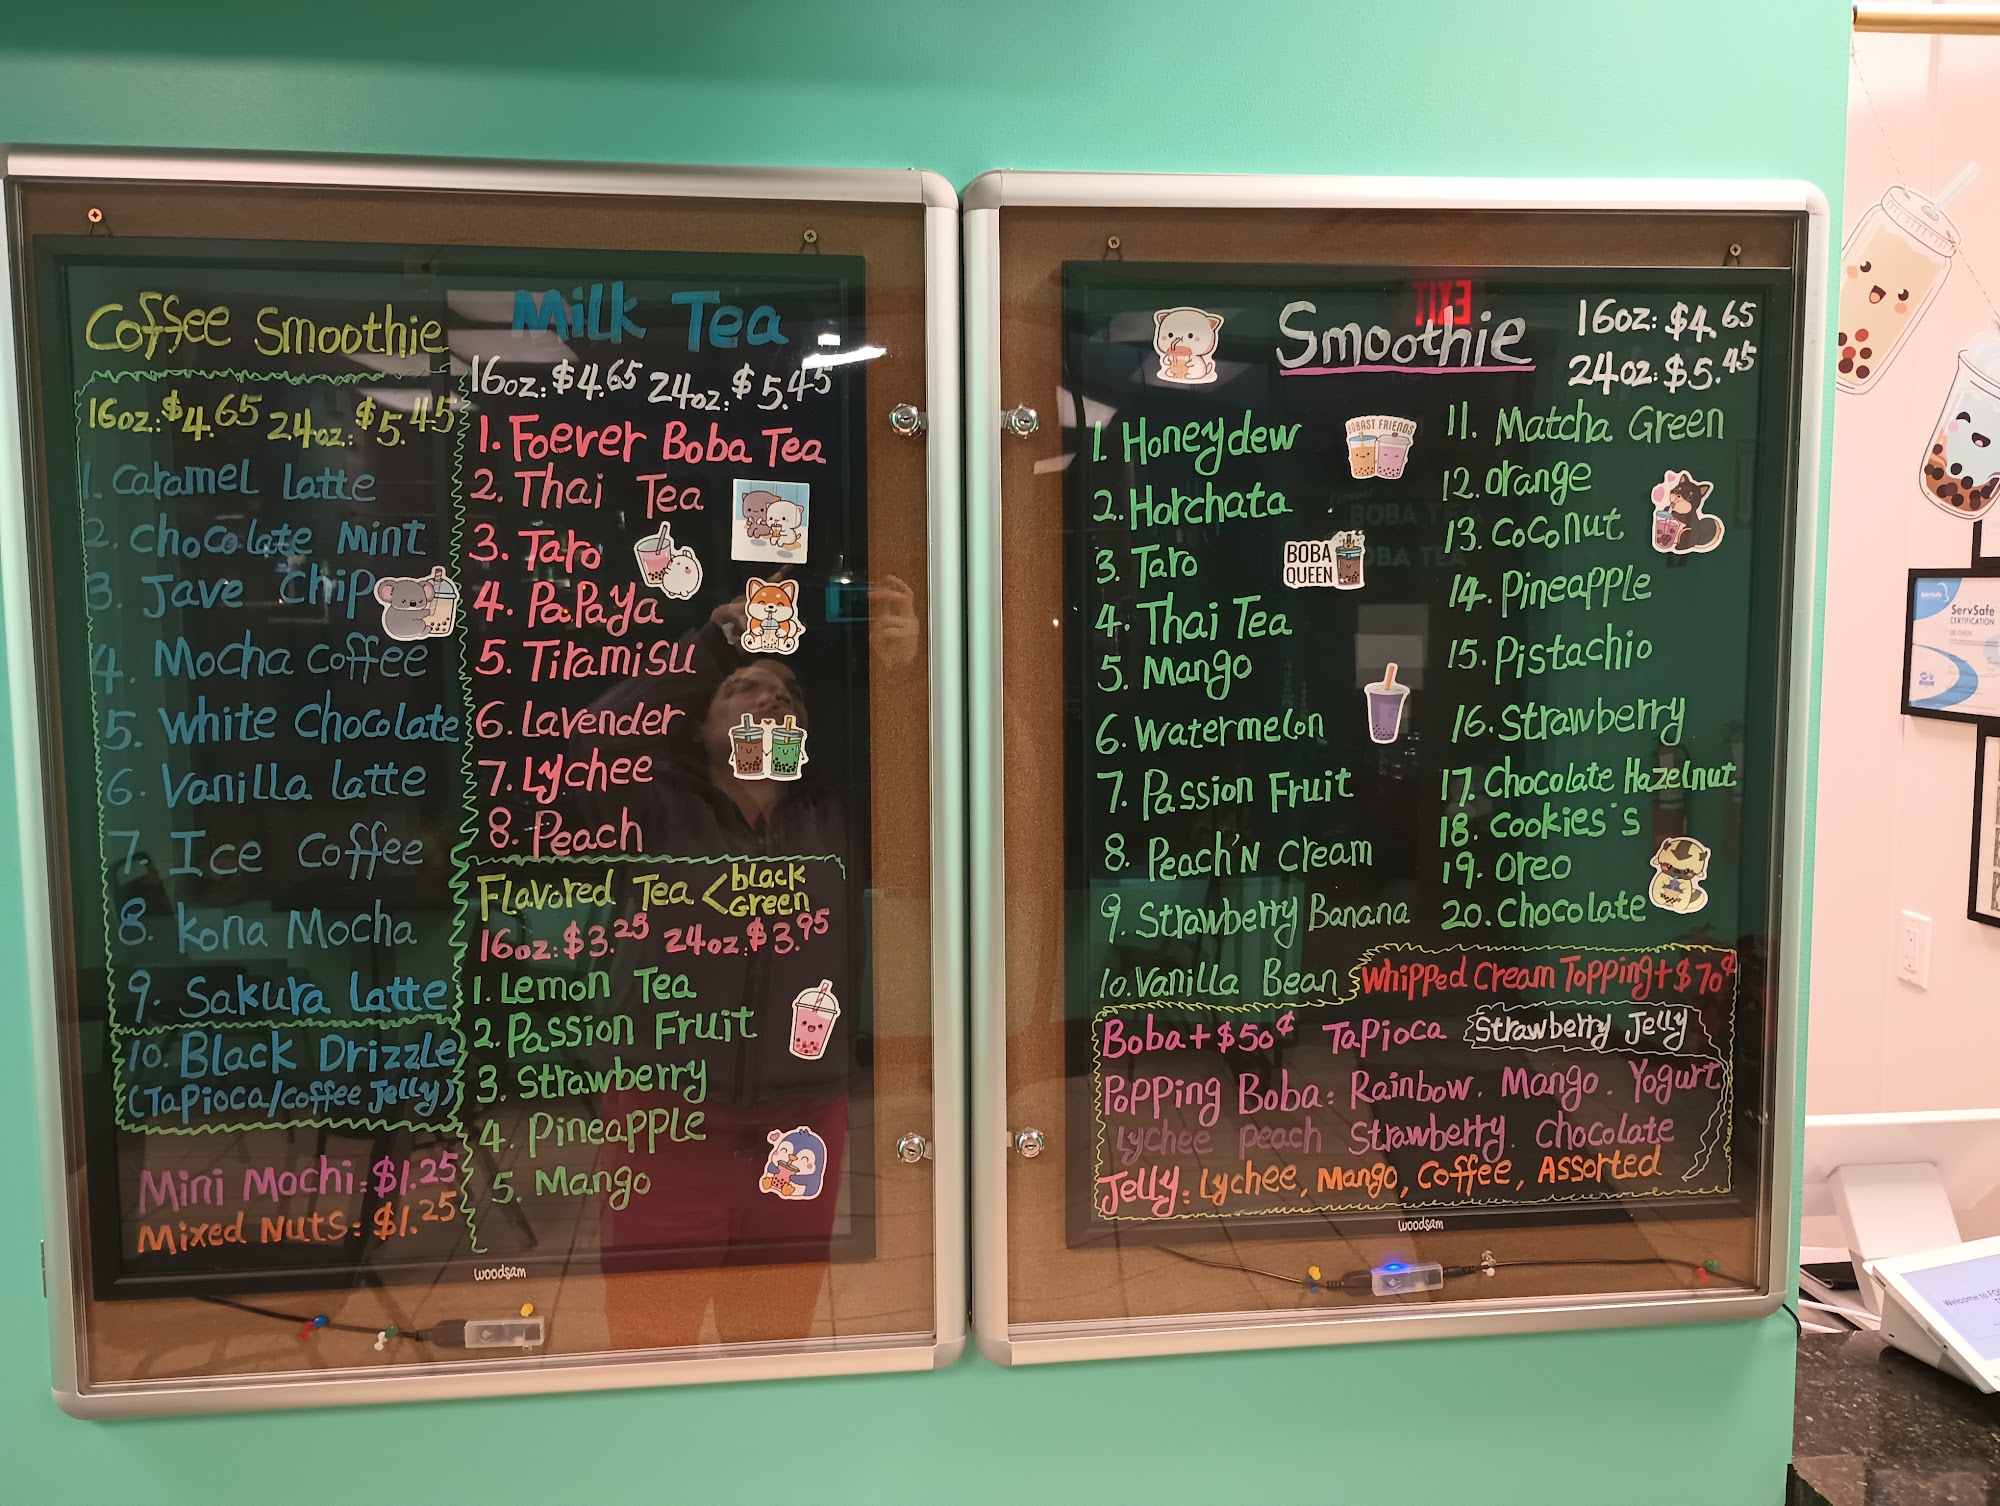 Coffee Smoothie
16oz: $4.65 24oz: $5.45
1. Caramel Latte
2. Chocolate Mint
3. Jave Chip
4. Mocha Coffee
5. White Chocolate
6. Vanilla Latte
7. Ice Coffee
8. Kona Mocha
9. Sakura Latte
10. Black Drizzle
(Tapioca/Coffee Jelly)
Mini Mochi: $1.25
Mixed Nuts: $1.25
Milk Tea
16oz: $4.65 24oz: $5.45
1. Foever Boba Tea
2. Thai Tea
3. Taro
4. PaPaYa
5. Tiramisu
6. Lavender
7. Lychee
8. Peach
Flavored Tea < black
Green
16oz: $3.25 24oz: $3.95
1. Lemon Tea
2. Passion Fruit
3. Strawberry
4. Pineapple
5. Mango
woodsam
Smoothie
16oz: $4.65
24oz: $5.45
EXIT
1. Honeydew
2. Horchata
3. Taro
4. Thai Tea
5. Mango
6. Watermelon
7. Passion Fruit
8. Peach'N Cream
9. Strawberry Banana
10. Vanilla Bean
BOBAST FRIENDS
BOBA
QUEEN
11. Matcha Green
12. Orange
13. CoCoNut
14. Pineapple
15. Pistachio
16. Strawberry
17. Chocolate Hazelnut
18. Cookies's
19. Oreo
20. Chocolate
Whipped Cream Topping + $70¢
Boba + $50¢ Tapioca Strawberry Jelly
Popping Boba: Rainbow. Mango. Yogurt
Lychee peach Strawberry. Chocolate
Jelly: Lychee, Mango, Coffee, Assorted
woodsam
ServSafe
CERTIFICATION
JIE CHEN